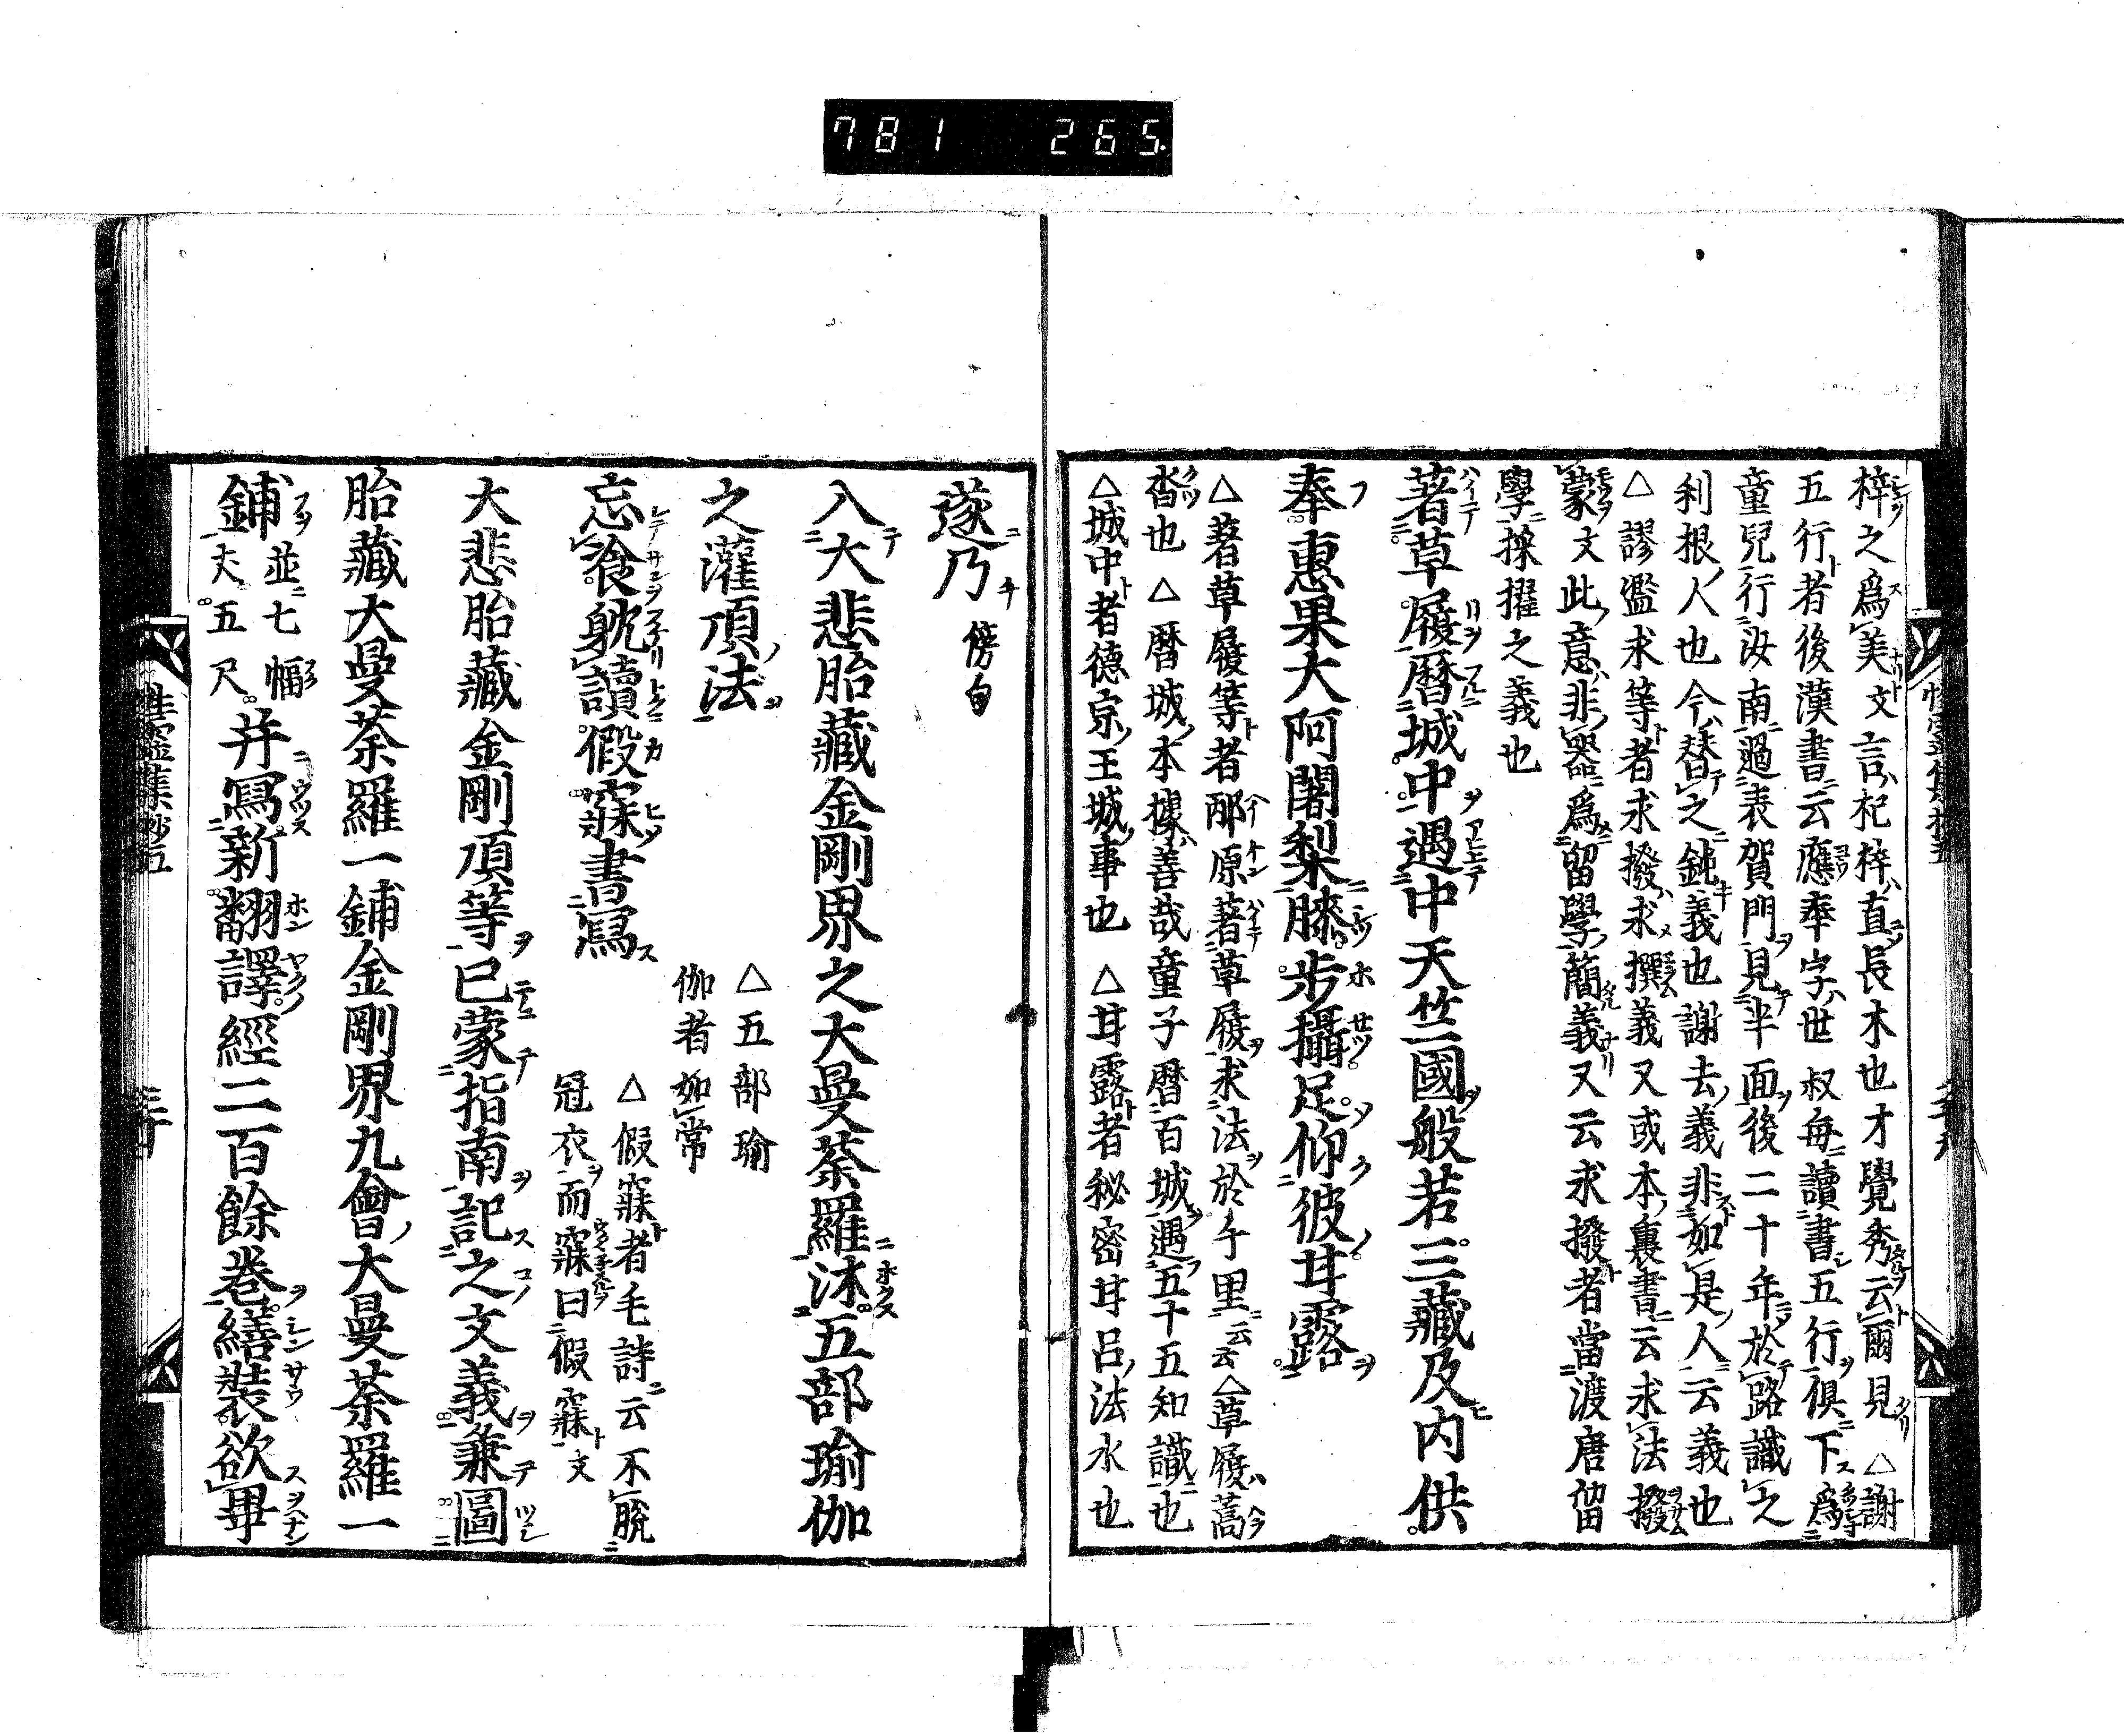 781 265
梓之爲美文言杞梓直長木也才覺秀云爾見△謝
五行者後漢書云應奉字世叔每讀書五行俱下爲
童兒行汝南過表賀門見半面後二十年於路識之
利根人也今替之鈍義也謝去義非如是人云義也
△謬濫求等者求撥求撰義又或本裏書云求法撥
蒙文此意非器爲留學簡義又云求撥者當渡唐留
學採擢之義也
著草履曆城中遇中天竺國般若三藏及内供
奉惠果大阿闍梨膝步攝足仰彼甘露
△著草履等者邴原著草履求法於千里云云△草履藁
沓也△曆城本據善哉童子曆百城遇五十五知識也
△城中者德宗王城事也△甘露者秘密甘呂法水也
遂乃傍白
入大悲胎藏金剛界之大曼荼羅沐五部瑜伽
之灌頂法△五部瑜
伽者如常
忘飡躭讀假寐書寫△假寐者毛詩云不脫
冠衣而寐曰假寐文
大悲胎藏金剛頂等已蒙指南記之文義兼圖
胎藏大曼荼羅一鋪金剛界九會大曼荼羅一
鋪並七幅
丈五尺
并寫新翻譯經二百餘卷繕裝欲畢
性靈集抄五